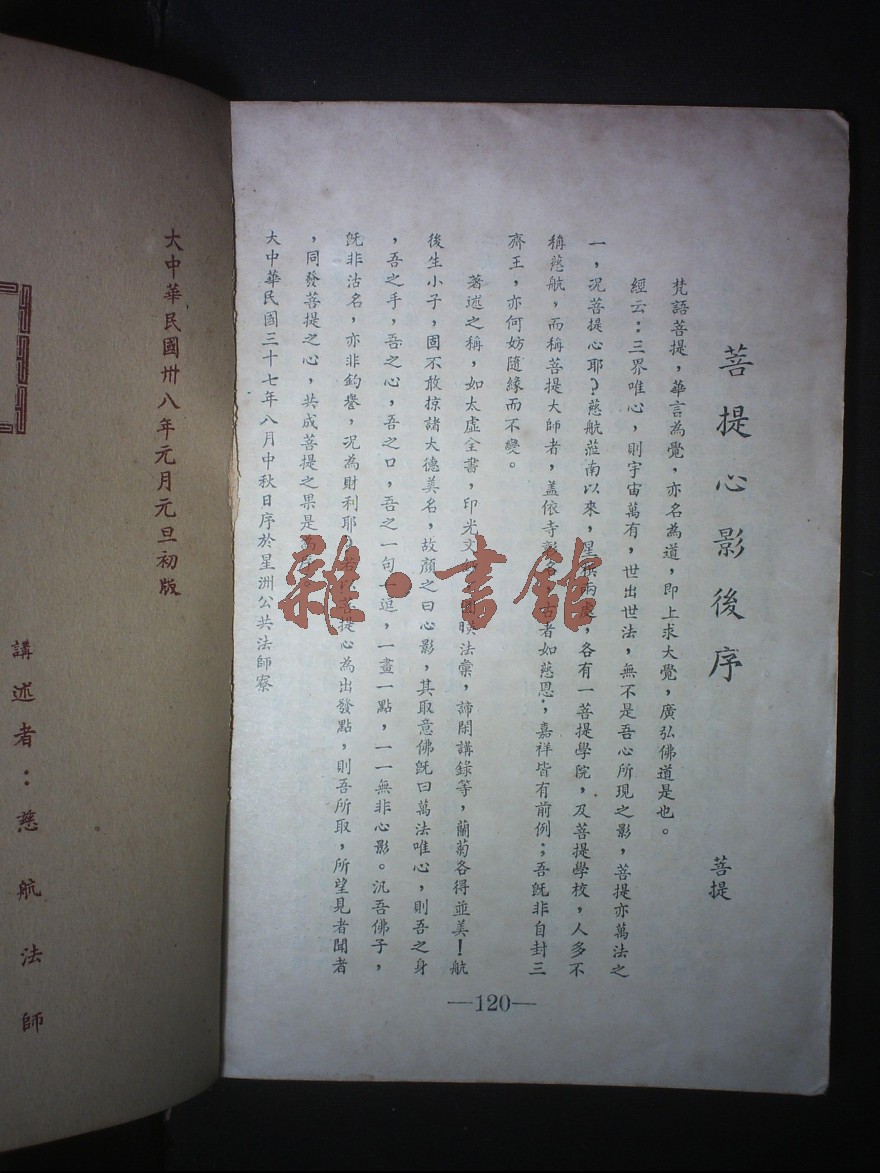 菩提心影後序
菩提
梵語菩提，華言為覺，亦名為道，即上求大覺，廣弘佛道是也。
經云：三界唯心，則宇宙萬有，世出世法，無不是吾心所現之影，菩提亦萬法之
一，況菩提心耶？慈航蒞南以來，星檳兩處，各有一菩提學院，及菩提學校，人多不
稱慈航，而稱菩提大師者，蓋依寺彰名，古者如慈恩，嘉祥皆有前例；吾既非自封三
齊王，亦何妨隨緣而不變。
著述之稱，如太虛全書，印光文，圓暎法彙，諦閑講錄等，蘭菊各得並美！航
後生小子，固不敢掠諸大德美名，故顏之曰心影，其取意佛既曰萬法唯心，則吾之身
，吾之手，吾之心，吾之口，吾之一句一逗，一畫一點，一一無非心影。汎吾佛子，
既非沽名，亦非釣譽，況為財利耶？若以菩提心為出發點，則吾所取，所望見者聞者
，同發菩提之心，共成菩提之果是為
大中華民國三十七年八月中秋日序於星洲公共法師寮
—120—
大中華民國卅八年元月元旦初版
講述者：慈航法師
雜·書館